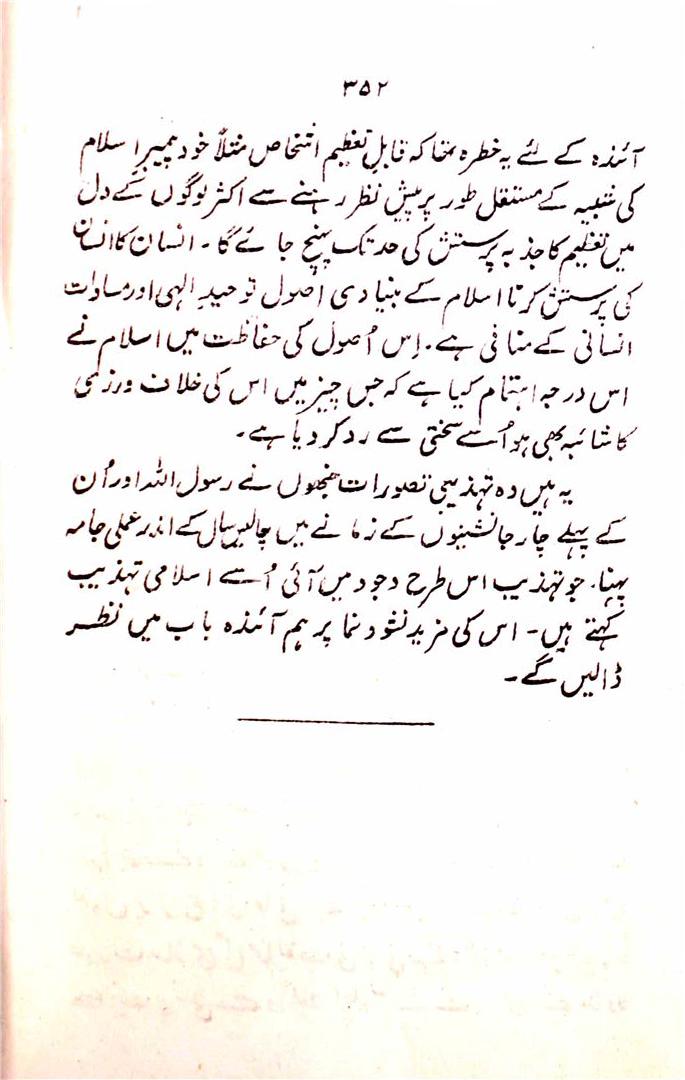 ۳۵۲
آئندہ کے لئے یہ خطرہ تھا کہ قابلِ تعظیم اشخاص مثلاً خود پیمبرِ اسلام
کی شبیہ کے مستقل طور پر پیش نظر رہنے سے اکثر لوگوں کے دل
میں تعظیم کا جذبہ پرستش کی حد تک پہنچ جائے گا۔ انسان کا انسان
کی پرستش کرنا اسلام کے بنیادی اصول توحیدِ الہی اور مساوات
انسانی کے منافی ہے۔ اِس اُصول کی حفاظت میں اسلام نے
اس درجہ اہتمام کیا ہے کہ جس چیز میں اس کی خلاف ورزی
کا شائبہ بھی ہو اُسے سختی سے رد کر دیا ہے۔
یہ ہیں وہ تہذیبی تصورات جنھوں نے رسول اللہ اور اُن
کے پہلے چار جانشینوں کے زمانے میں چالیس سال کے اندر عملی جامہ
پہنا۔ جو تہذیب اس طرح وجود میں آئی اُسے اسلامی تہذیب
کہتے ہیں۔ اس کی مزید نشو و نما پر ہم آئندہ باب میں نظر
ڈالیں گے۔